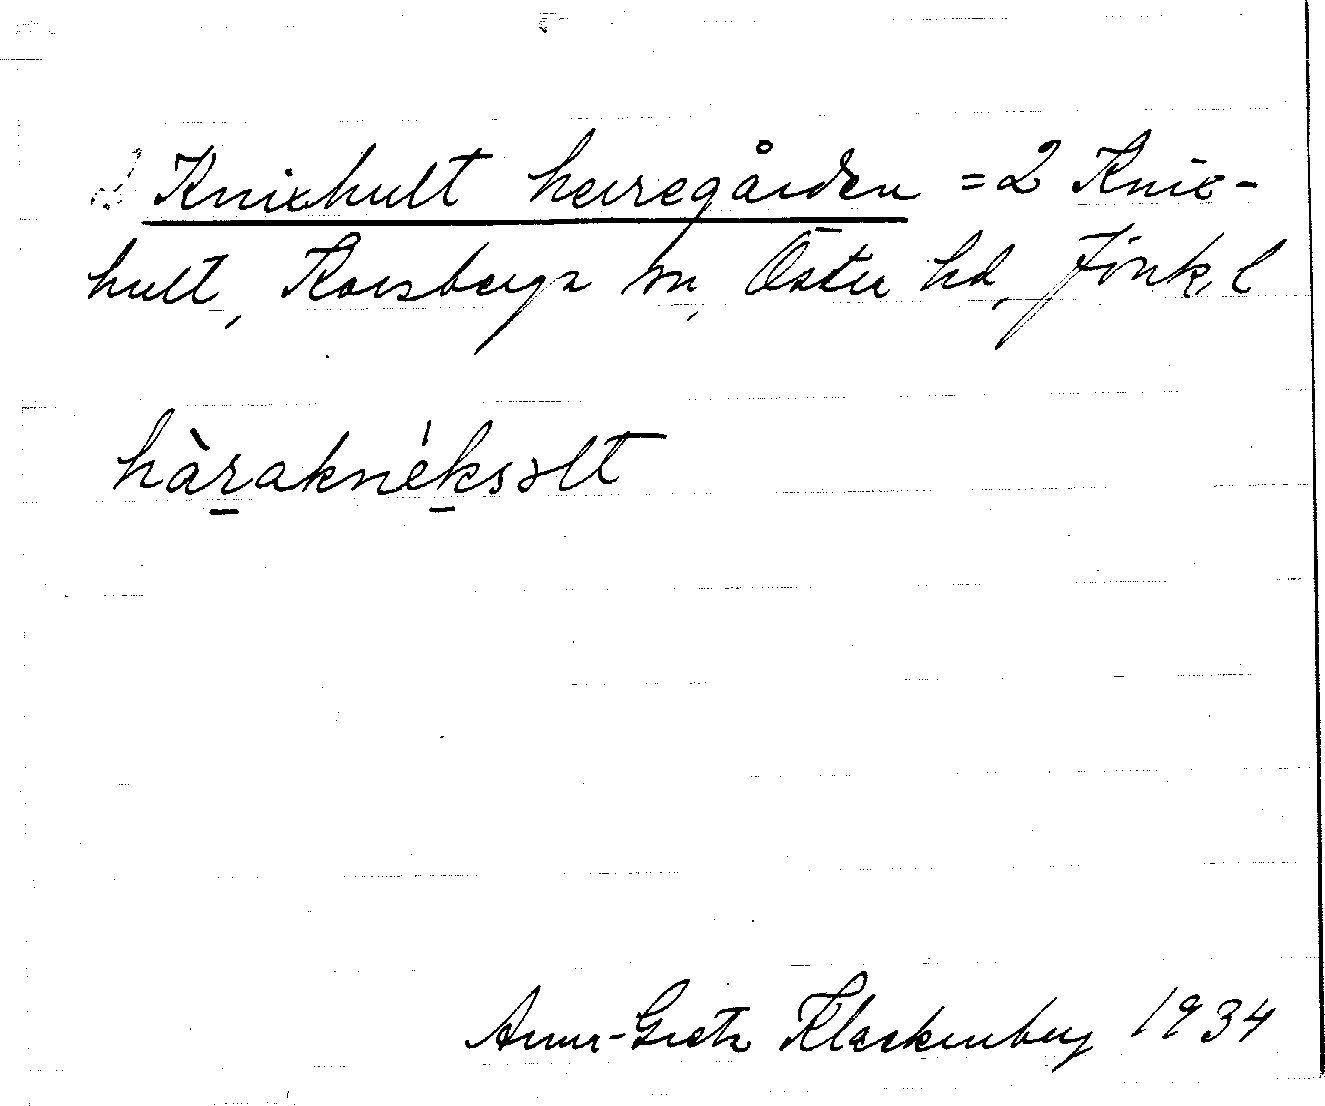 Knixhult herregården = 2 Knix-
hult, Korsberga sn, Östra hd, Jönk. l
hàraknéksɔlt
Anna-Greta Klackenberg 1934